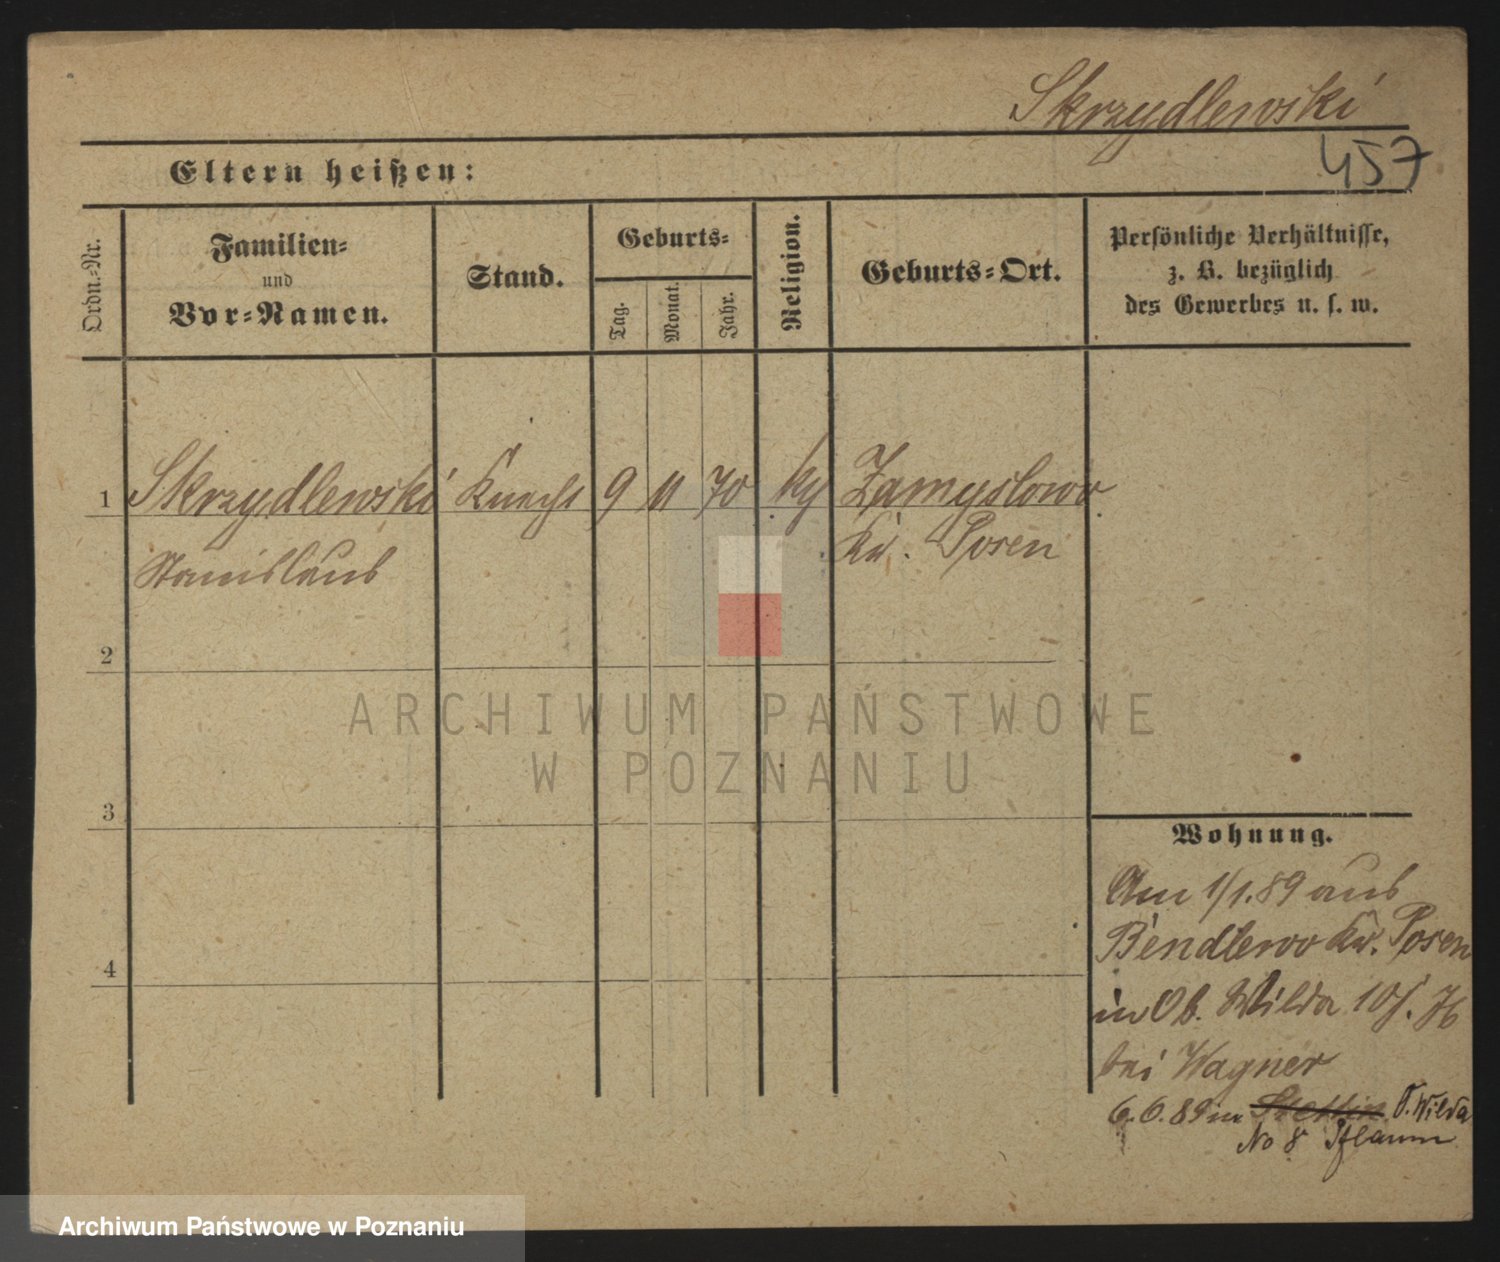 Skrzydlewski
457
Eltern heißen:
Ordn.-Nr.
Familien-
und
Vor-Namen.
Stand.
Geburts-
Tag.
Monat.
Jahr.
Religion.
Geburts-Ort.
Persönliche Verhältnisse,
z. B. bezüglich
des Gewerbes u. s. w.
1 Skrzydlewski Knecht 9 11 70 Zamyslowo
Stanislaus Kr. Posen
2
3
4
ARCHIWUM PAŃSTWOWE
W POZNANIU
Wohnung.
Am 1/1.89 aus
Bendlewo Kr. Posen
in Ob. Wilda
bei Wagner
6.6.89 in Stettin O. Wilda
No 8 Pflaum
Archiwum Państwowe w Poznaniu